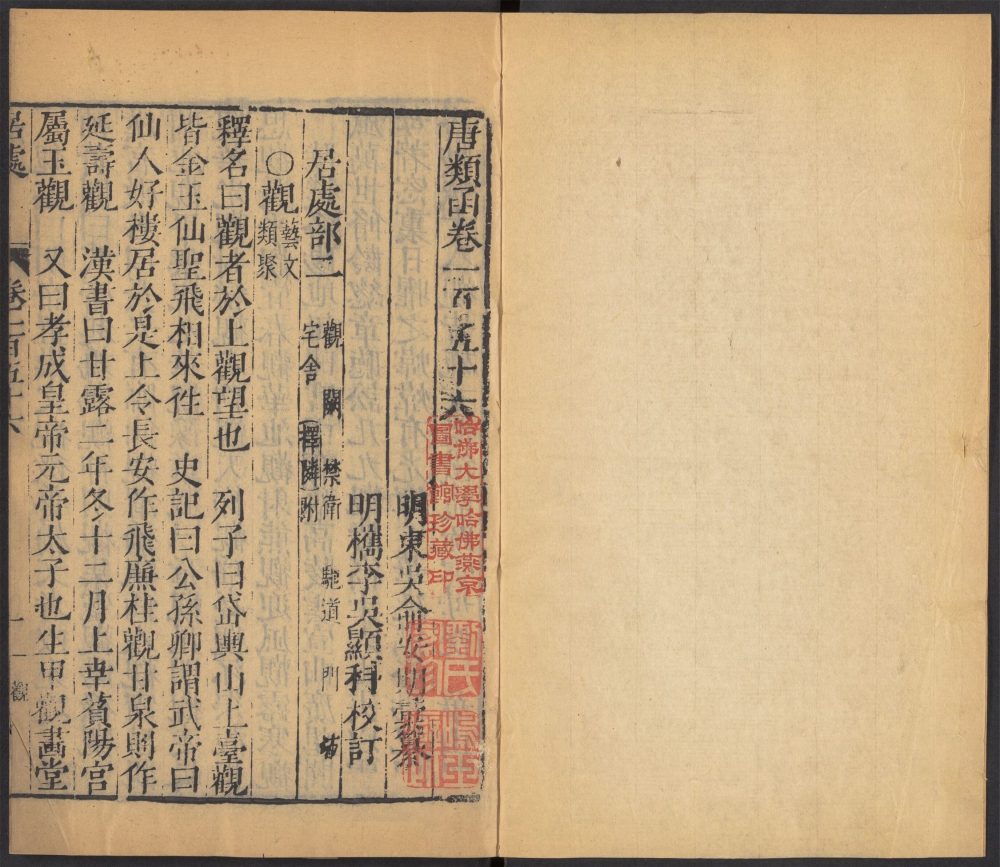 唐類函卷一百五十六
明東吳俞安期彙纂
明檇李吳顯科校訂
居處部二
觀 闕 禁衛 馳道 門
宅舍 擇隣附
○觀
藝文
類聚
釋名曰觀者於上觀望也 列子曰岱輿山上臺觀
皆金玉仙聖飛相來徃 史記曰公孫卿謂武帝曰
仙人好樓居於是上令長安作飛廉桂觀甘泉則作
延壽觀 漢書曰甘露二年冬十二月上幸萯陽宮
屬玉觀 又曰孝成皇帝元帝太子也生甲觀畫堂
居處 卷一百五十六 一 觀
哈佛大學哈佛燕京
圖書館珍藏印